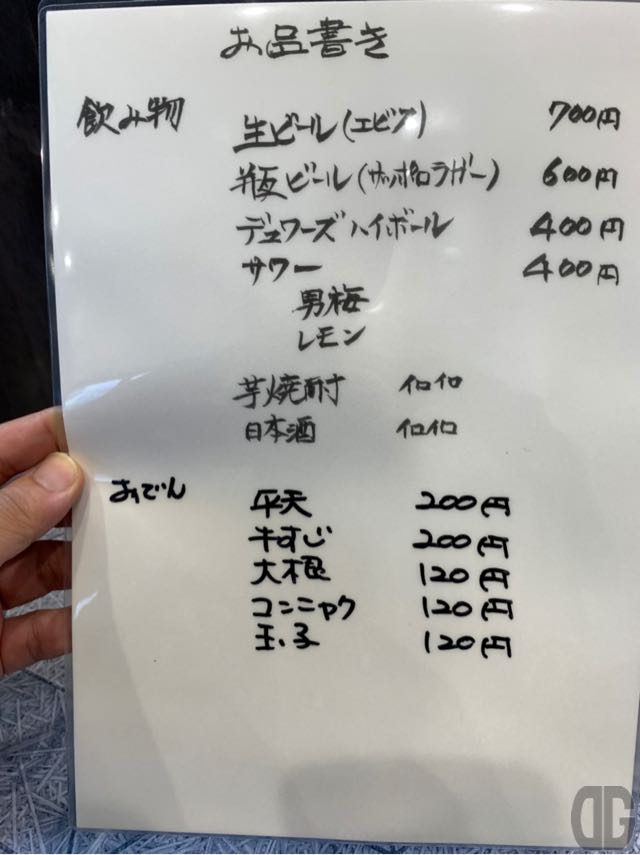 お品書き
飲み物
生ビール(エビス) 700円
瓶ビール(サッポロラガー) 600円
デュワーズハイボール 400円
サワー 400円
男梅
レモン
芋焼酎 イロイロ
日本酒 イロイロ
おでん
平天 200円
牛すじ 200円
大根 120円
コンニャク 120円
玉子 120円
DG